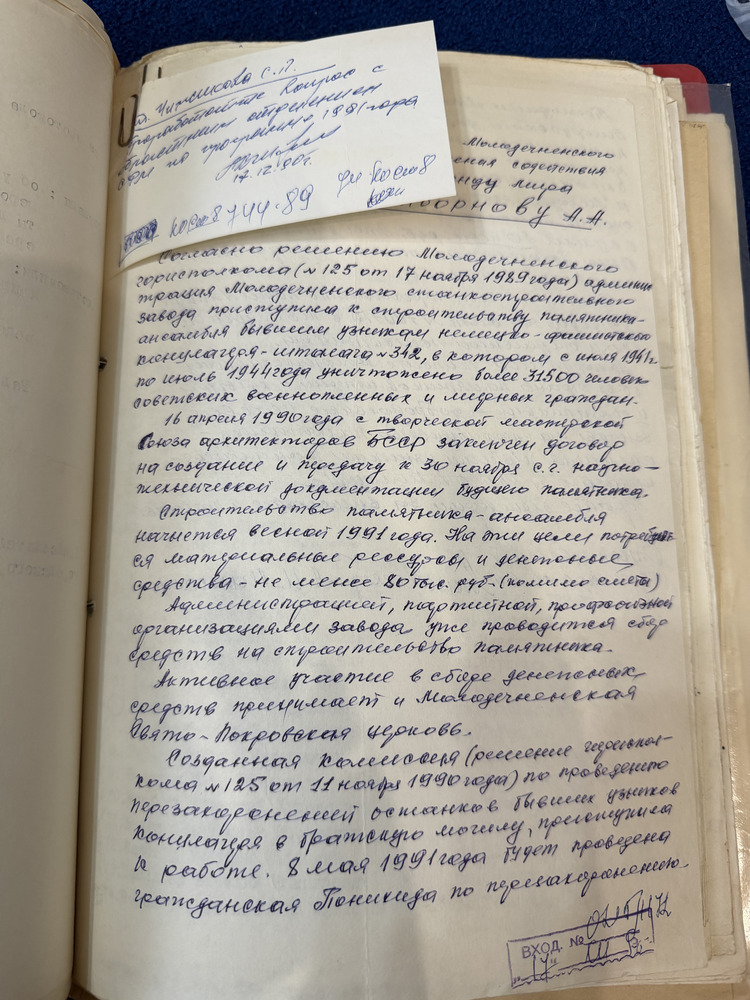 т. Чижикова С.П.
Проработайте вопрос с
проектным отделением
СФМ по программе 1991 года
17.12.90г.
косм8 744-89
Молодечненского
содействия
Фонду мира
А.А.
Согласно решению Молодечненского
горисполкома (№125 от 17 ноября 1989 года) админис-
трация Молодечненского станкостроительного
завода приступила к строительству памятника-
ансамбля бывшим узникам немецко-фашистского
концлагеря-шталага №342, в котором с июля 1941г.
по июль 1944 года уничтожено более 31500 человек
советских военнопленных и мирных граждан.
16 апреля 1990 года с творческой мастерской
Союза архитекторов БССР заключен договор
на создание и передачу к 30 ноября с.г. научно-
технической документации будущего памятника.
Строительство памятника-ансамбля
начнется весной 1991 года. На эти цели потребует-
ся материальные ресурсы и денежные
средства - не менее 80 тыс. руб. (помимо сметы)
Администрацией, партийной, профсоюзной
организациями завода уже проводится сбор
средств на строительство памятника.
Активное участие в сборе денежных
средств принимает и Молодечненская
Свято-Покровская церковь.
Созданная комиссия (решение гориспол-
кома №125 от 11 ноября 1990 года) по проведению
перезахоронений останков бывших узников
концлагеря в братскую могилу, приступила
к работе. 8 мая 1991 года будет проведена
гражданская Панихида по перезахоронению
ВХОД. №